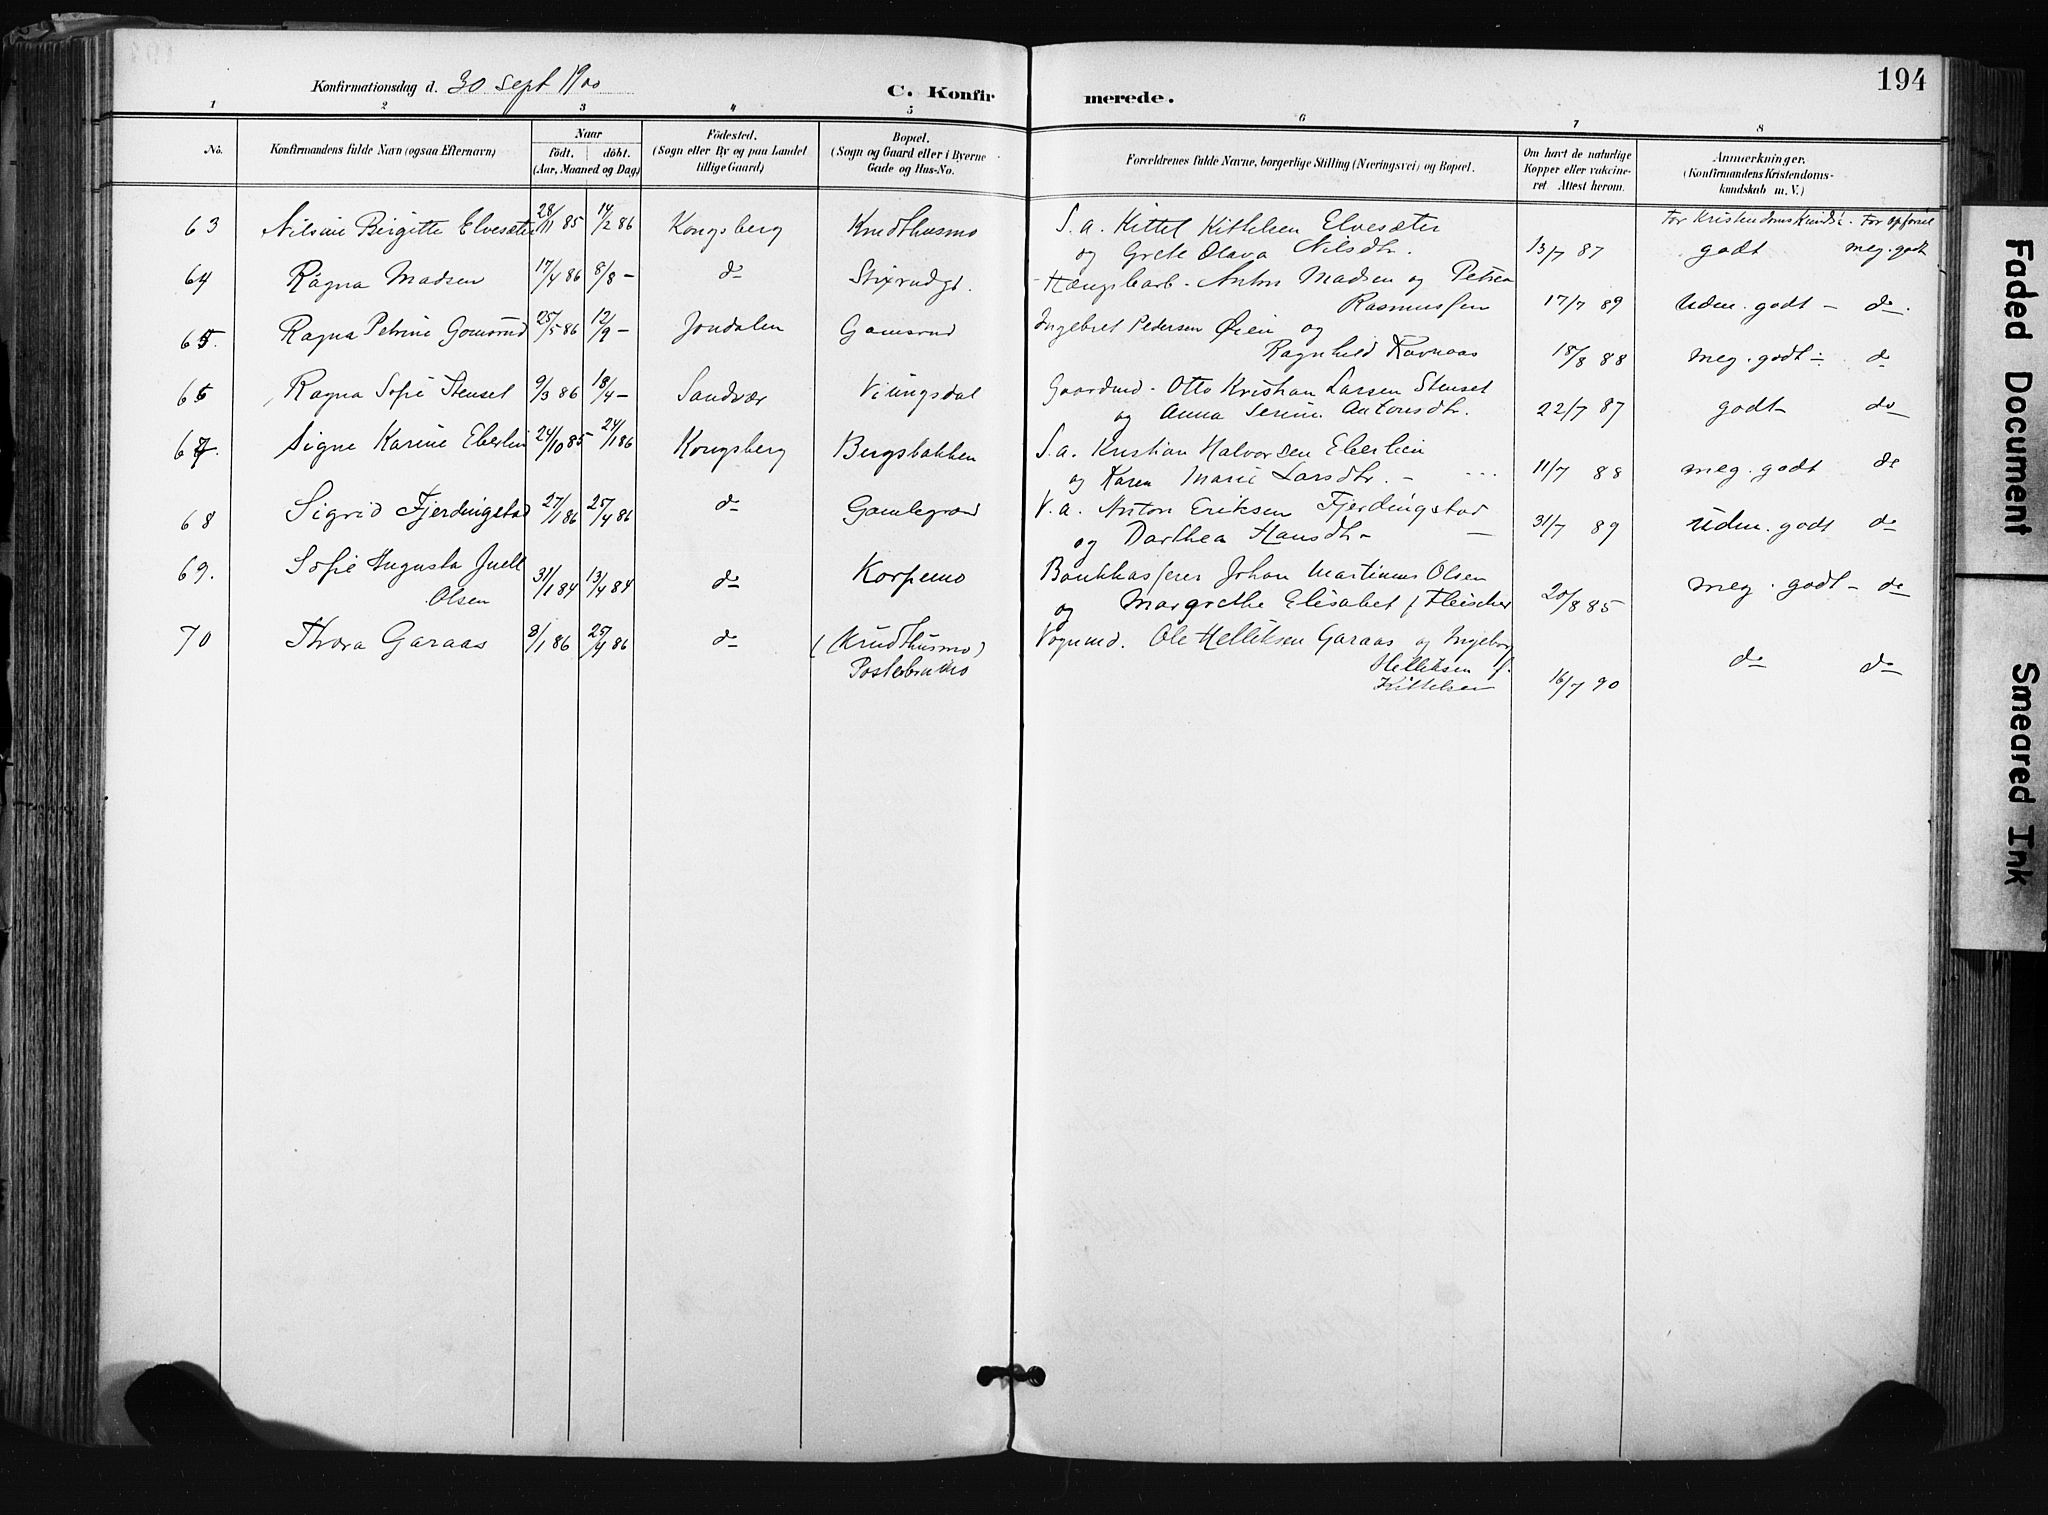 194
Konfirmationsdag d. 30 Sept 1900
C. Konfirmerede.
1 2 3 4 5 6 7 8
No.
Konfirmandens fulde Navn (ogsaa Efternavn)
Naar
födt. döbt.
(Aar, Maaned og Dag)
Födested.
(Sogn eller By og paa Landet
tillige Gaard)
Bopæl.
(Sogn og Gaard eller i Byerne
Gade og Hus-No.
Forældrenes fulde Navne, borgerlige Stilling (Næringsvei) og Bopæl.
Om havt de naturlige
Kopper eller vakcine-
ret Attest herom.
Anmærkninger.
(Konfirmandens Kristendoms-
kundskab m. V.)
For Kristendomskundsk. For opførsel
63 Nilsine Birgitte Elvesæter 28/11 85 14/2 86 Kongsberg Knudthusmo S. a. Kittel Kittelsen Elvesæter
og Grete Olava Nilsdtr. 13/7 87 godt meg. godt
64 Ragna Madsen 17/4 86 8/8 – do Stixrudgt. Hængslearb. Anton Madsen og Petrea
Rasmussen 17/7 89 Udm. godt – do.
65 Ragna Petrine Gomsrud 25/5 86 12/9 – Jondalen Gamsrud Ingebret Pedersen Øien og
Ragnhild Ravnaas 18/8 88 meg. godt – do
66 Ragna Sofie Stenset 9/3 86 18/4 – Sandvær Viingsdal Gaardmd. Otto Kristian Larsen Stenset
og Anna Serine Antonsdtr. 22/7 87 godt do
67. Signe Karine Eberlin 24/10 85 24/1 86 Kongsberg Bergsbakken S. a. Kristian Halvorsen Eberlein
og Karen Marie Larsdtr. – 11/7 88 meg. godt do
68 Sigrid Fjerdingstad 27/1 86 25/4 86 do Gamlegrænd V. a. Anton Eriksen Fjerdingstad
og Darthea Hansdtr – 31/7 89 Udm. godt do
69. Sofie Augusta Juell
Olsen 31/1 84 13/4 84 do Korpemo Bankkasserer Johan Martinius Olsen
og Margrethe Elisabet f. Fleischer 20/8 85 meg. godt – do
70 Thora Garaas 8/1 86 25/4 86 do (Knudthusmo) Vognmd. Ole Helliksen Garaas og Ingeborg
Helliksen f.
Kittelsen 16/7 90 do do
Faded Document
Smeared Ink